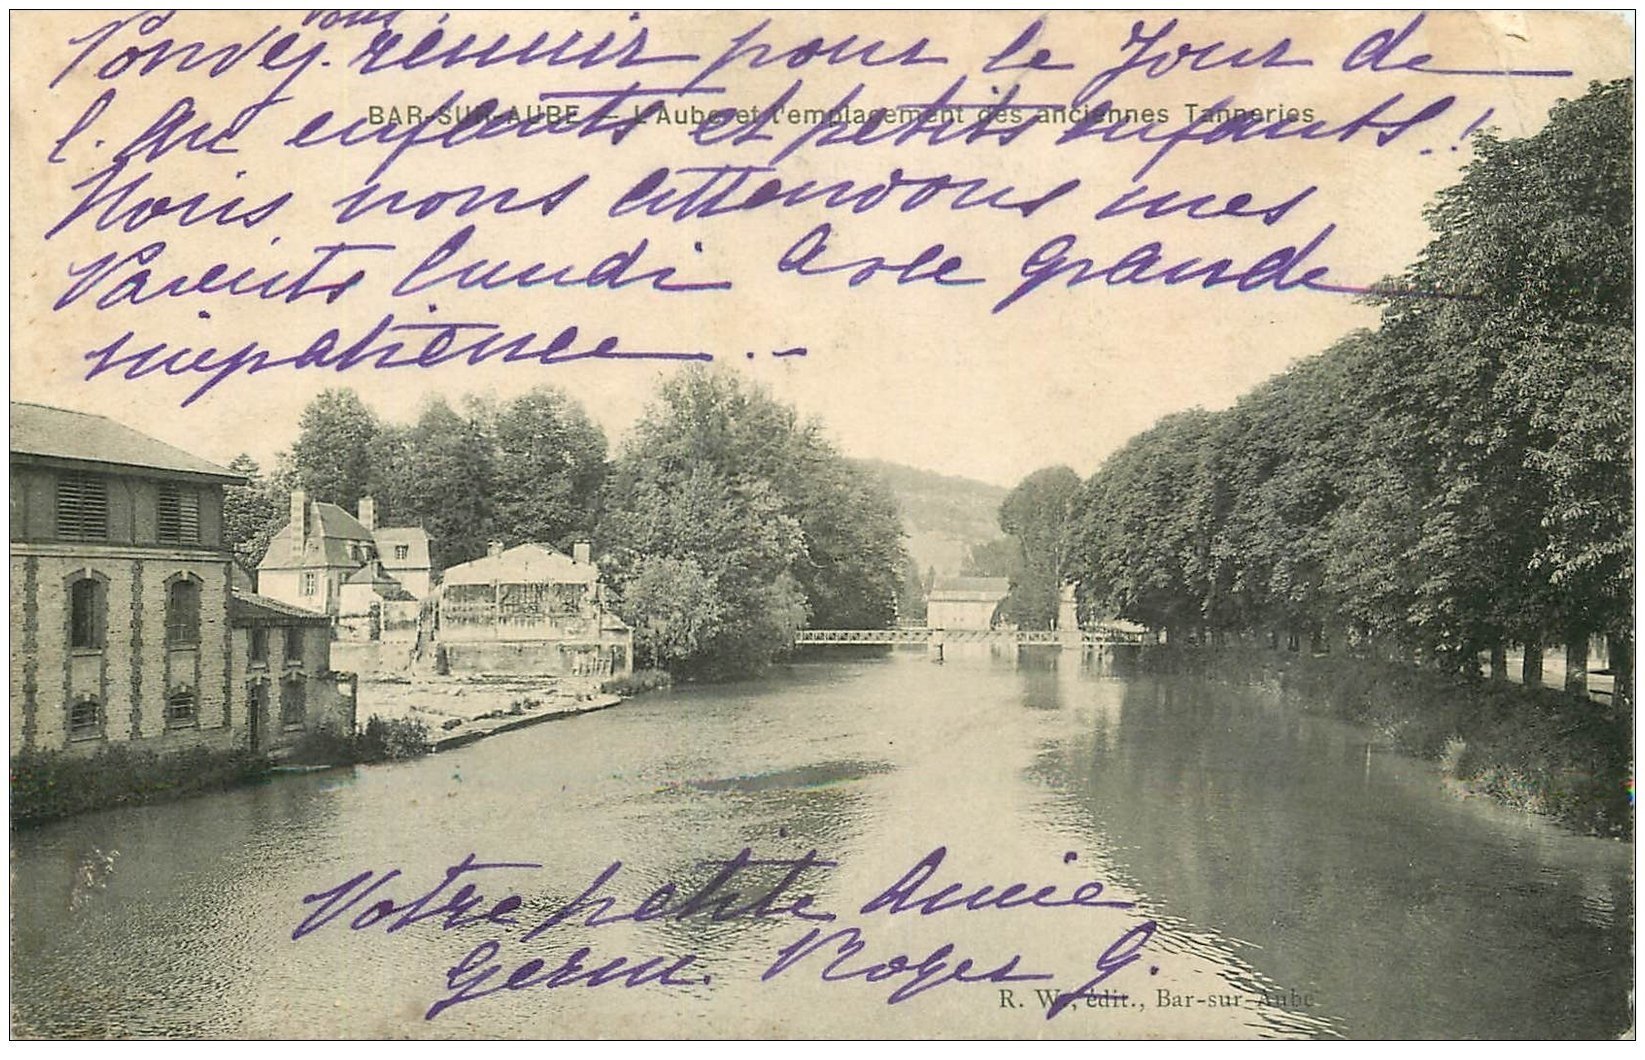 vous
Pouvez. réunir pour le Jour de
l. An enfants et petits enfants..!
BAR-SUR-AUBE — L'Aube et l'emplacement des anciennes Tanneries
Nous, nous attendons mes
Parents lundi avec grande
impatience . -
Votre petite Amie
Germ. Roger G.
R. W., édit., Bar-sur-Aube